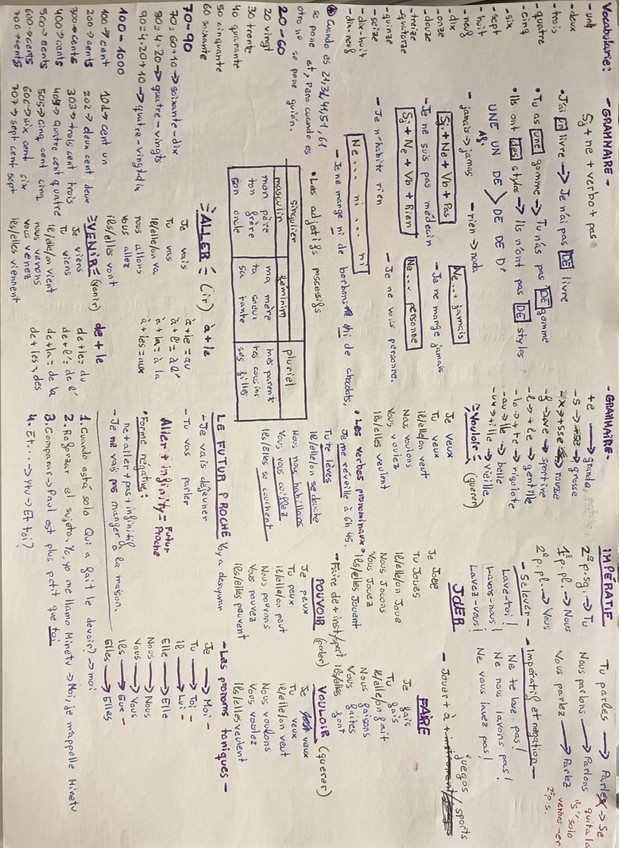 Vocabulaire:
- un
- deux
- trois
- quatre
- cinq
- six
- sept
- huit
- neuf
- dix
- onze
- douze
- treize
- quatorze
- quinze
- seize
- dix-huit
- dix-neuf
Cuando es 21/31/41/51/61
se pone et, pero cuando es
otro nº se pone guión.
20-60
20 vingt
30 trente
40 quarante
50 cinquante
60 soixante
70-90
70 = 60+10 → soixante-dix
80 = 4·20 → quatre-vingts
90 = 4·20+10 → quatre-vingt-dix
100-1000
100 → cent 101 → cent un
200 → cents 202 → deux cent deux
300 → cents 303 → trois cent trois
400 → cents 404 → quatre cent quatre
500 → cents 505 → cinq cent cinq
600 → cents 606 → six cent six
700 → cents 707 → sept cent sept
- GRAMMAIRE -
Sj + ne + verbo + pas
• J'ai un livre → Je n'ai pas DE livre
• Tu as une gomme → Tu n'as pas DE gomme
• Ils ont des stylos → Ils n'ont pas DE stylos
UN UNE DES > DE D'
- jamais → jamas - rien → nada
Sj + Ne + Vb + Pas
- Je ne suis pas médecin
Ne... jamais
- Je ne mange jamais
Sj + Ne + Vb + Rien
- Je n'habite rien
Ne... personne
- Je ne vois personne.
Ne... ni... ni
- Je ne mange ni de bonbons ni de chocolats.
• Les adjetifs possessifs
singulier pluriel
masculin feminin
mon père ma mère mes parents
ton frère ta soeur tes cousins
son oncle sa tante ses filles
ALLER (ir)
Je vais
Tu vas
il/elle/on va
nous allons
vous allez
ils/elles vont
à + le
à + le = au
à + l' = à l'
à + la = à la
à + les = aux
VENIR (venir)
Je viens
Tu viens
il/elle/on vient
nous venons
vous venez
ils/elles viennent
de + le
de + le = du
de + l' = de l'
de + la = de la
de + les = des
- GRAMMAIRE -
+ e → grande
- s → grosse
- f → ve → sportive
- l → + le → gentille
- o → + te → rigolote
- au → elle → belle
- ux → ille → vieille
Vouloir (querer)
Je veux
Tu veux
il/elle/on veut
Nous voulons
Vous voulez
ils/elles veulent
• Les verbes pronominaux •
Je me réveille à 6h 45
Tu te lèves
il/elle/on se douche
Nous nous habillons
Vous vous coiffez
ils/elles se couchent
LE FUTUR PROCHE
- Je vais déjeuner
- Tu vas parler
Aller + infinitif = Futur Proche
• Forme négative:
ne + aller + pas + infinitif
- Je ne vais pas manger à la maison.
1. Cuando está solo Qui a fait le devoir? → moi
2. Reforzar el sujeto. Yo, yo me llamo Minetu → Moi, je m'appelle Minetu
3. Comparar → Paul est plus petit que toi
4. Et... → Y tu → Et toi?
IMPÉRATIF
2º p. sg. → Tu Tu parles → Parle
1ª p. pl. → Nous Nous parlons → Parlons
2ª p. pl. → Vous Vous parlez → Parlez
- Se laver -
Lave-toi!
Lavons-nous!
Lavez-vous!
- Impératif et négation -
Ne te lave pas!
Ne nous lavons pas!
Ne vous lavez pas!
JOER
Je Joue
Tu Joues
il/elle/on Joue
Nous Jouons
Vous Jouez
ils/elles Jouent
- Jouer + à + juegos/sports
FAIRE
Je fais
Tu fais
il/elle/on fait
Nous faisons
Vous faites
ils/elles font
- Faire de + inst/sport
POUVOIR (poder)
Je peux
Tu peux
il/elle/on peut
Nous pouvons
Vous pouvez
ils/elles peuvent
VOULOIR (querer)
Je veux
Tu veux
il/elle/on veut
Nous voulons
Vous voulez
ils/elles veulent
- Les pronoms toniques -
Je → Moi
Tu → Toi
Il → Lui
Elle → Elle
Nous → Nous
Vous → Vous
Ils → Eux
Elles → Elles